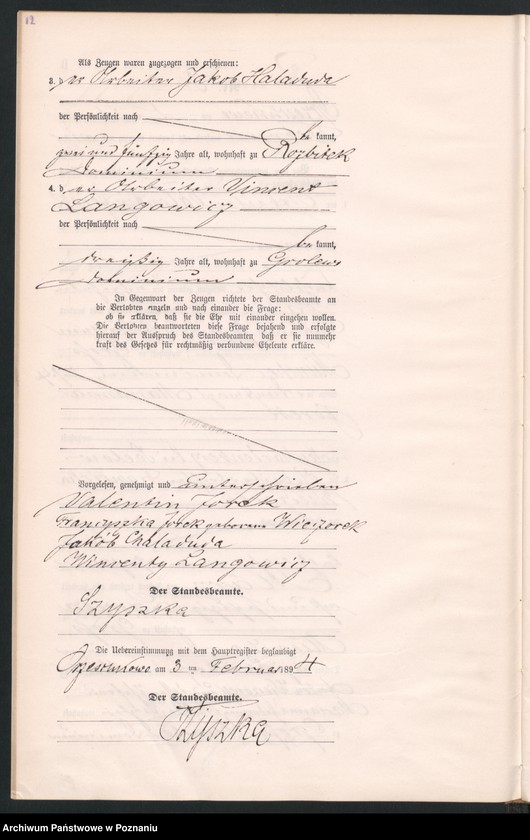 12
Als Zeugen waren zugezogen und erschienen:
3. der Arbeiter Jakob Haladuda
der Persönlichkeit nach
be kannt,
zwei und fünfzig Jahre alt, wohnhaft zu Rozbitek
Dominium
4. der Arbeiter Vincent
Langowicz
der Persönlichkeit nach
be kannt,
dreißig Jahre alt, wohnhaft zu
Dominium
In Gegenwart der Zeugen richtete der Standesbeamte an
die Verlobten einzeln und nach einander die Frage:
ob sie erklären, daß sie die Ehe mit einander eingehen wollen.
Die Verlobten beantworteten diese Frage bejahend und erfolgte
hierauf der Ausspruch des Standesbeamten, daß er sie nunmehr
kraft des Gesetzes für rechtmäßig verbundene Eheleute erkläre.
Vorgelesen, genehmigt und unterschrieben
Valentin Jorek
Franciszka Jorek geborene Wieczorek
Jakób Chaladuda
Wincenty Langowicz
Der Standesbeamte.
Szyszka
Die Uebereinstimmung mit dem Hauptregister beglaubigt
am 3 ten Februar 1894
Der Standesbeamte.
Szyszka
Archiwum Państwowe w Poznaniu